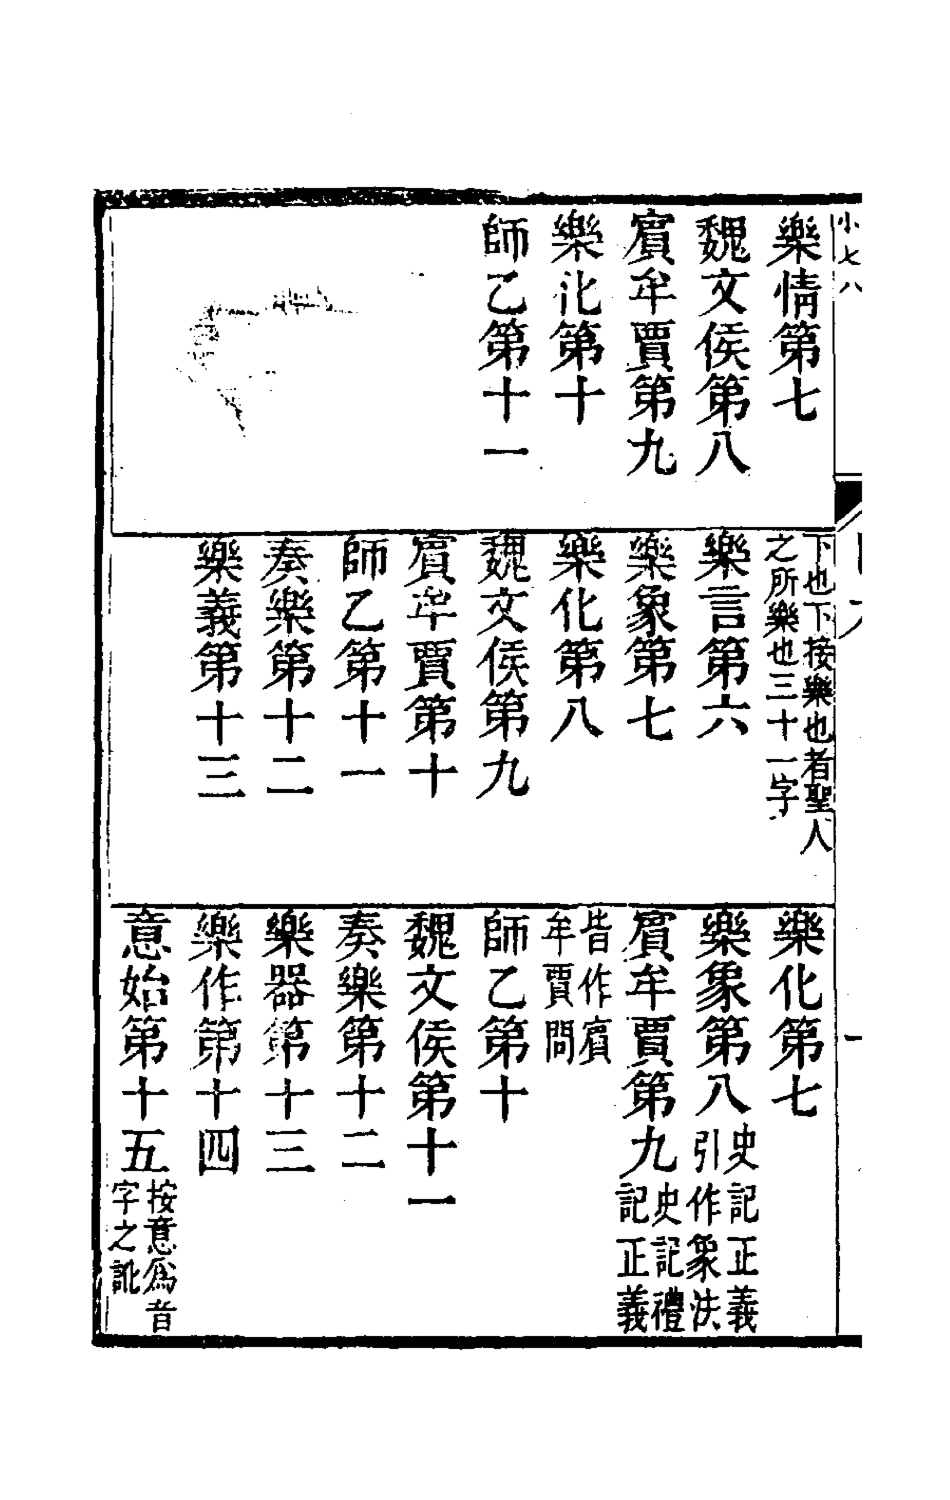 小七八
樂情第七
魏文侯第八
賓牟賈第九
樂化第十
師乙第十一
下也下按樂也者聖人
之所樂也三十一字
樂言第六
樂象第七
樂化第八
魏文侯第九
賓牟賈第十
師乙第十一
奏樂第十二
樂義第十三
樂化第七
樂象第八史記正義
引作象法
賓牟賈第九史記禮
記正義
皆作賓
牟賈問
師乙第十
魏文侯第十一
奏樂第十二
樂器第十三
樂作第十四
意始第十五按意爲音
字之訛